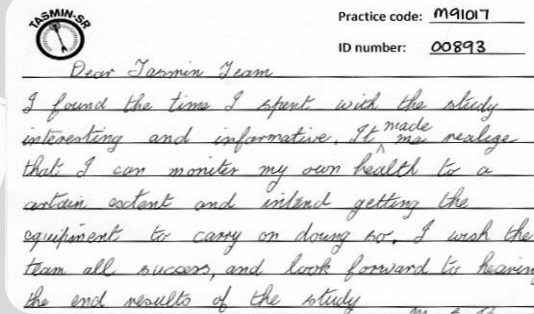 TASMIN-SR
Practice code: M91017
ID number: 00893
Dear Tasmin Team
I found the time I spent with the study
interesting and informative. It made me realize
that I can moniter my own health to a
certain extent and intend getting the
equipment to carry on doing so. I wish the
team all success, and look forward to hearing
the end results of the study